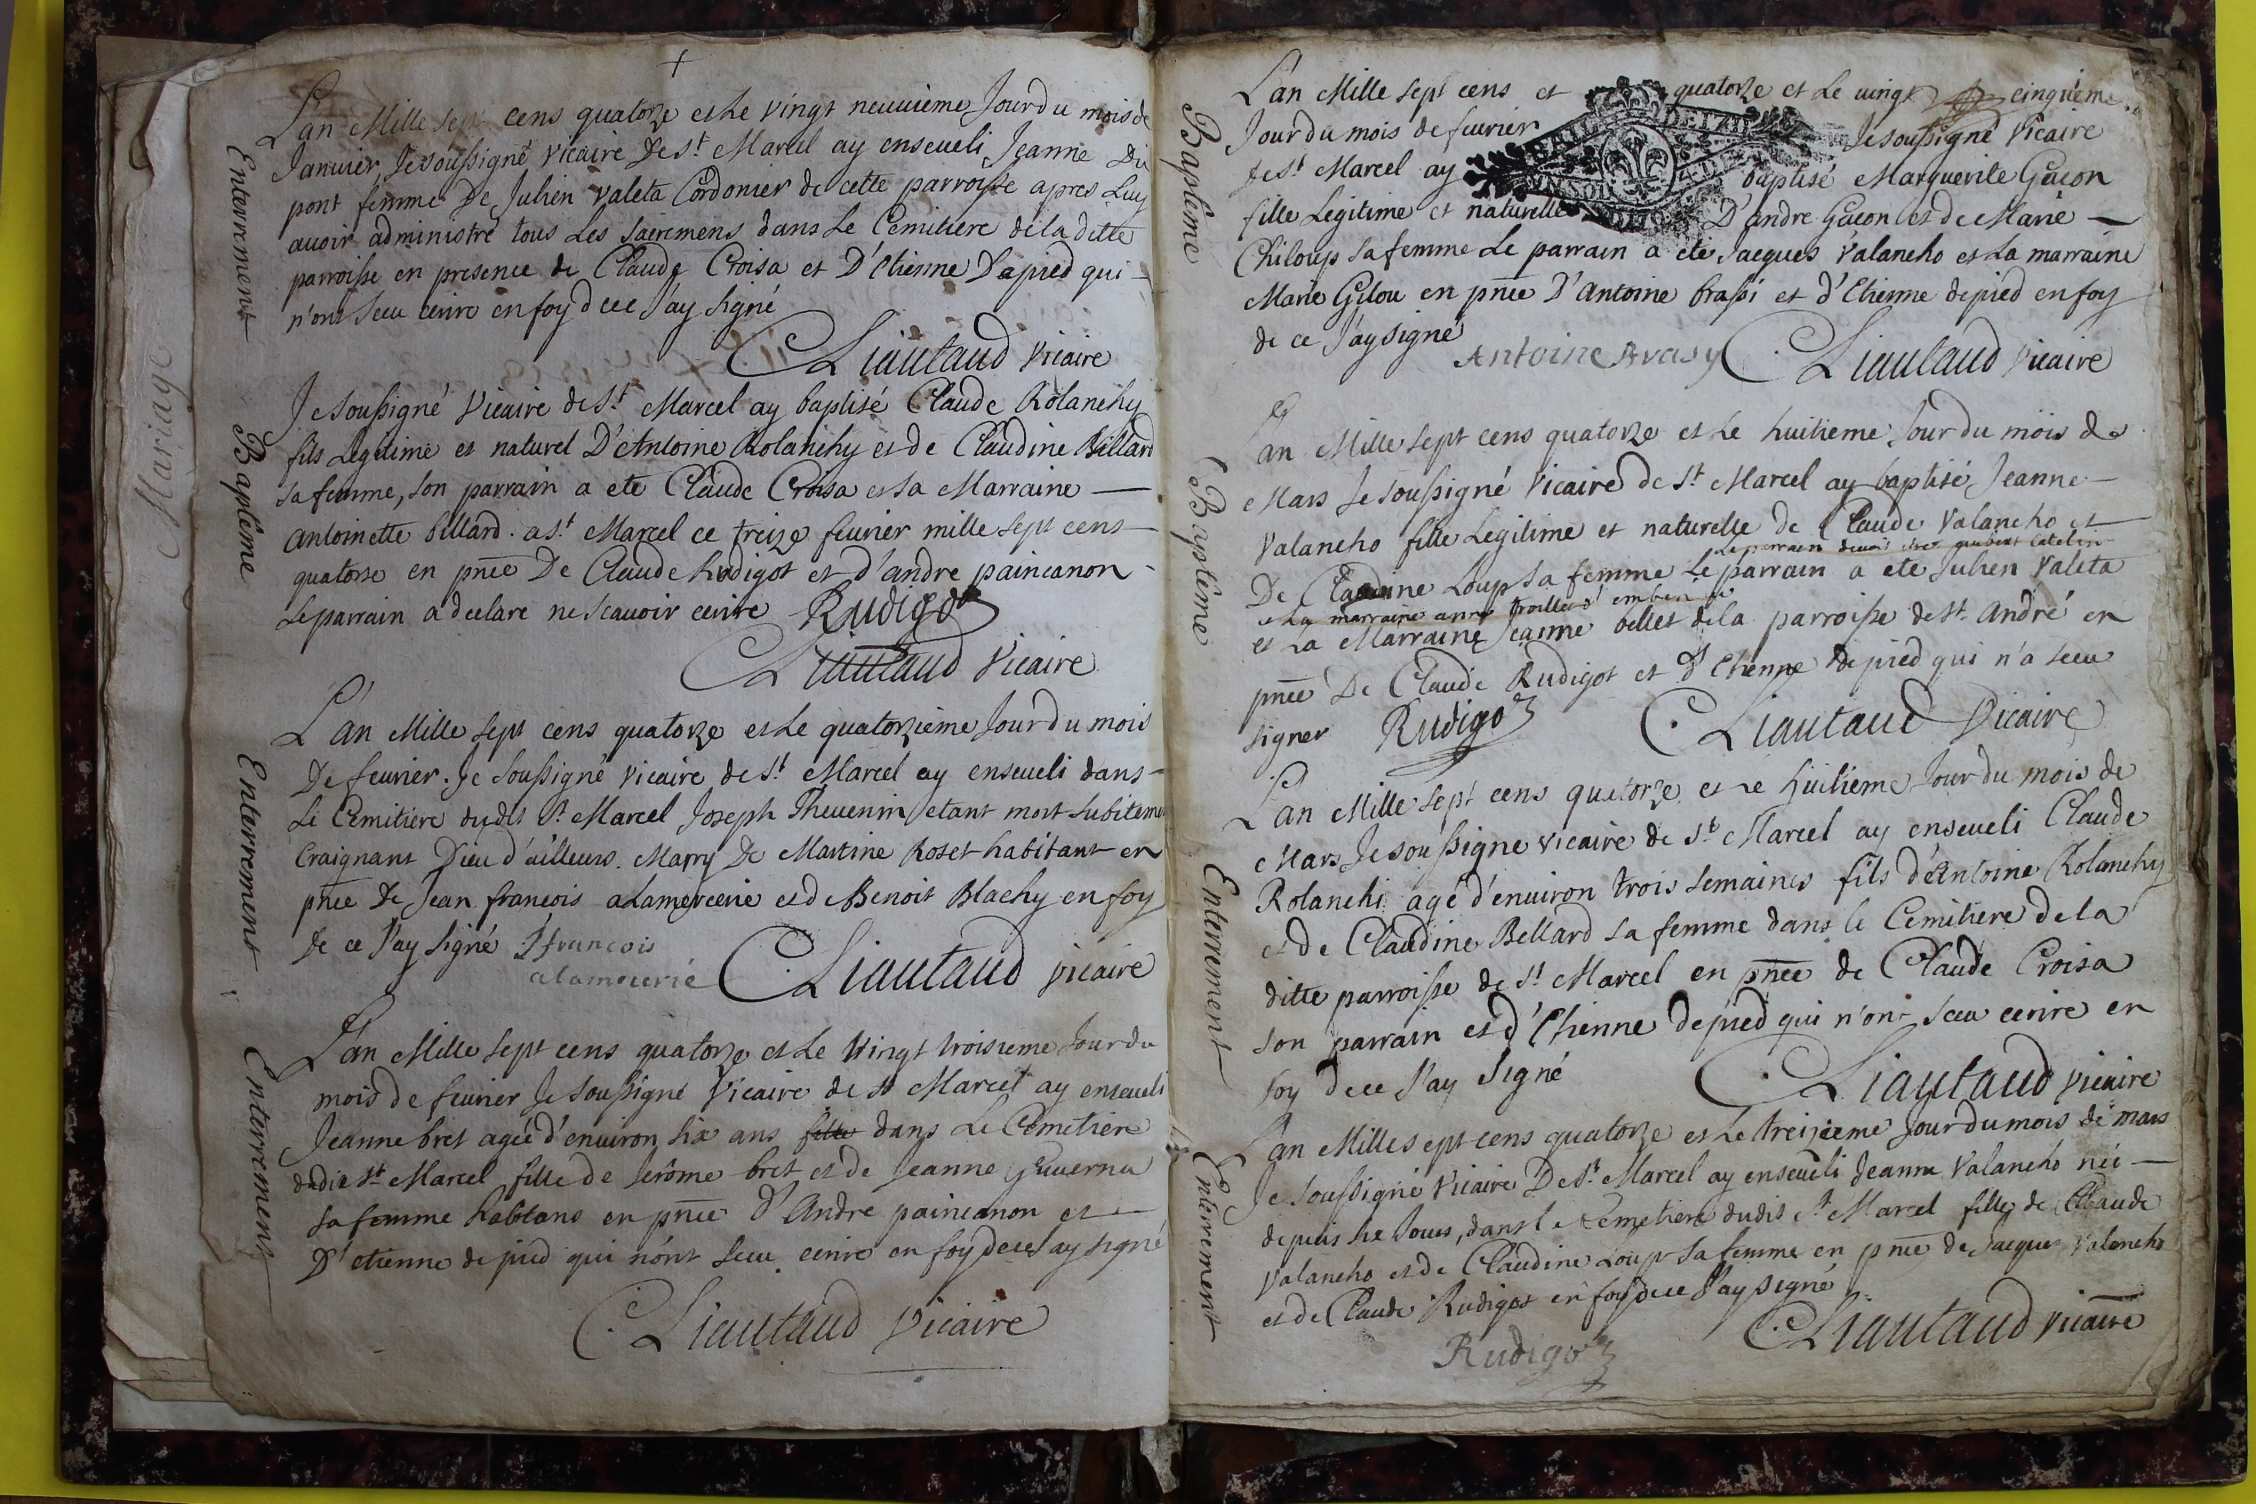 +
L'an Mille sept cens quatorze et Le vingt neuuieme Jour du mois de
Januier, Je soussigné vicaire De St Marcel ay enseueli Jeanne Du
pont femme De Julien Valeta Cordonier de cette parroisse apres Luy
auoir administré tous Les sacremens dans Le Cemitiere de la ditte
parroisse en presence de Claude Croisa et D'Etienne Dapied qui
n'ont sceu ecrire en foy de ce J'ay signé
Liautaud vicaire
Enterrement
Je soussigné Vicaire de St Marcel ay baptisé Claude Rolanchy
fils Legitime et naturel D'Antoine Rolanchy et de Claudine Billard
sa femme, son parrain a ete Claude Croisa et sa Marraine
antoinette billard. a St Marcel ce treize feurier mille sept cens
quatorze en pnce De Claude Rudigot et d'andre paincanon
Le parrain a declare ne scauoir ecrire Rudigoz
Liautaud Vicaire
Baptême
L'an Mille sept cens quatorze et Le quatorzieme Jour du mois
De feurier. Je soussigné vicaire de St Marcel ay enseueli dans
Le Cemitiere dudit St Marcel Joseph Theuenin etant mort subitement
Craignant Dieu d'ailleurs. Marry De Martine Roset habitant en
pnce De Jean francois alamercerie et de Benoit Blachy en foy
de ce J'ay signé J francois
alamercerie Liautaud vicaire
Enterrement
L'an Mille sept cens quatorze et Le Vingt troisieme Jour du
mois de feurier Je soussigné Vicaire de St Marcel ay enseueli
Jeanne bret ageé d'enuiron six ans fille dans Le Cemetiere
dudit St Marcel fille de Jerôme bret et de Jeanne
sa femme habitans en pnce D'Andre paincanon et
D'etienne de pied qui n'ont sceu ecrire en foy de ce J'ay signé
Liautaud Vicaire
Enterrement
Mariage
L'an Mille sept cens et quatorze et Le uingt cinquieme
Jour du mois de feurier Je soussigné Vicaire
de St Marcel ay baptisé Marguerite Gacon
fille Legitime et naturelle D'andre Gacon et de Marie
Chiloup sa femme Le parrain a ete Jacques Valancho et La marraine
Marie Gilou en pnce D'Antoine brassi et d'Etienne depied en foy
de ce J'ay signé
Antoine Liautaud Vicaire
Baptême
L'an Mille sept cens quatorze et Le huitieme Jour du mois de
Mars Je soussigné Vicaire de St Marcel ay baptisé Jeanne
Valancho fille Legitime et naturelle de Claude Valancho et
Le parrain deuait etre
De Claudine Loup sa femme Le parrain a ete Julien Valeta
et La marraine
et La Marraine Jeanne bellet de la parroisse de St André en
pnce De Claude Rudigot et d'Etienne depied qui n'a sceu
signer Rudigoz Liautaud Vicaire
Baptême
L'an Mille sept cens quatorze et Le huitieme Jour du mois de
Mars Je soussigne vicaire de St Marcel ay enseueli Claude
Rolanchi agé d'enuiron trois semaines fils d'Antoine Rolanchy
et de Claudine Bellard sa femme dans le Cemitiere de la
ditte parroisse de St Marcel en pnce de Claude Croisa
son parrain et d'Etienne depied qui n'ont sceu ecrire en
foy de ce J'ay signé Liautaud vicaire
Enterrement
L'an Mille sept cens quatorze et Le treizieme Jour du mois de mars
Je soussigné Vicaire De St Marcel ay enseueli Jeanne Valancho née
depuis six Jours, dans le Cemetiere dudit St Marcel fille de Claude
Valancho et de Claudine Loup sa femme en pnce de Jacques Valancho
et de Claude Rudigot en foy de ce J'ay signé
Rudigoz Liautaud vicaire
Enterrement